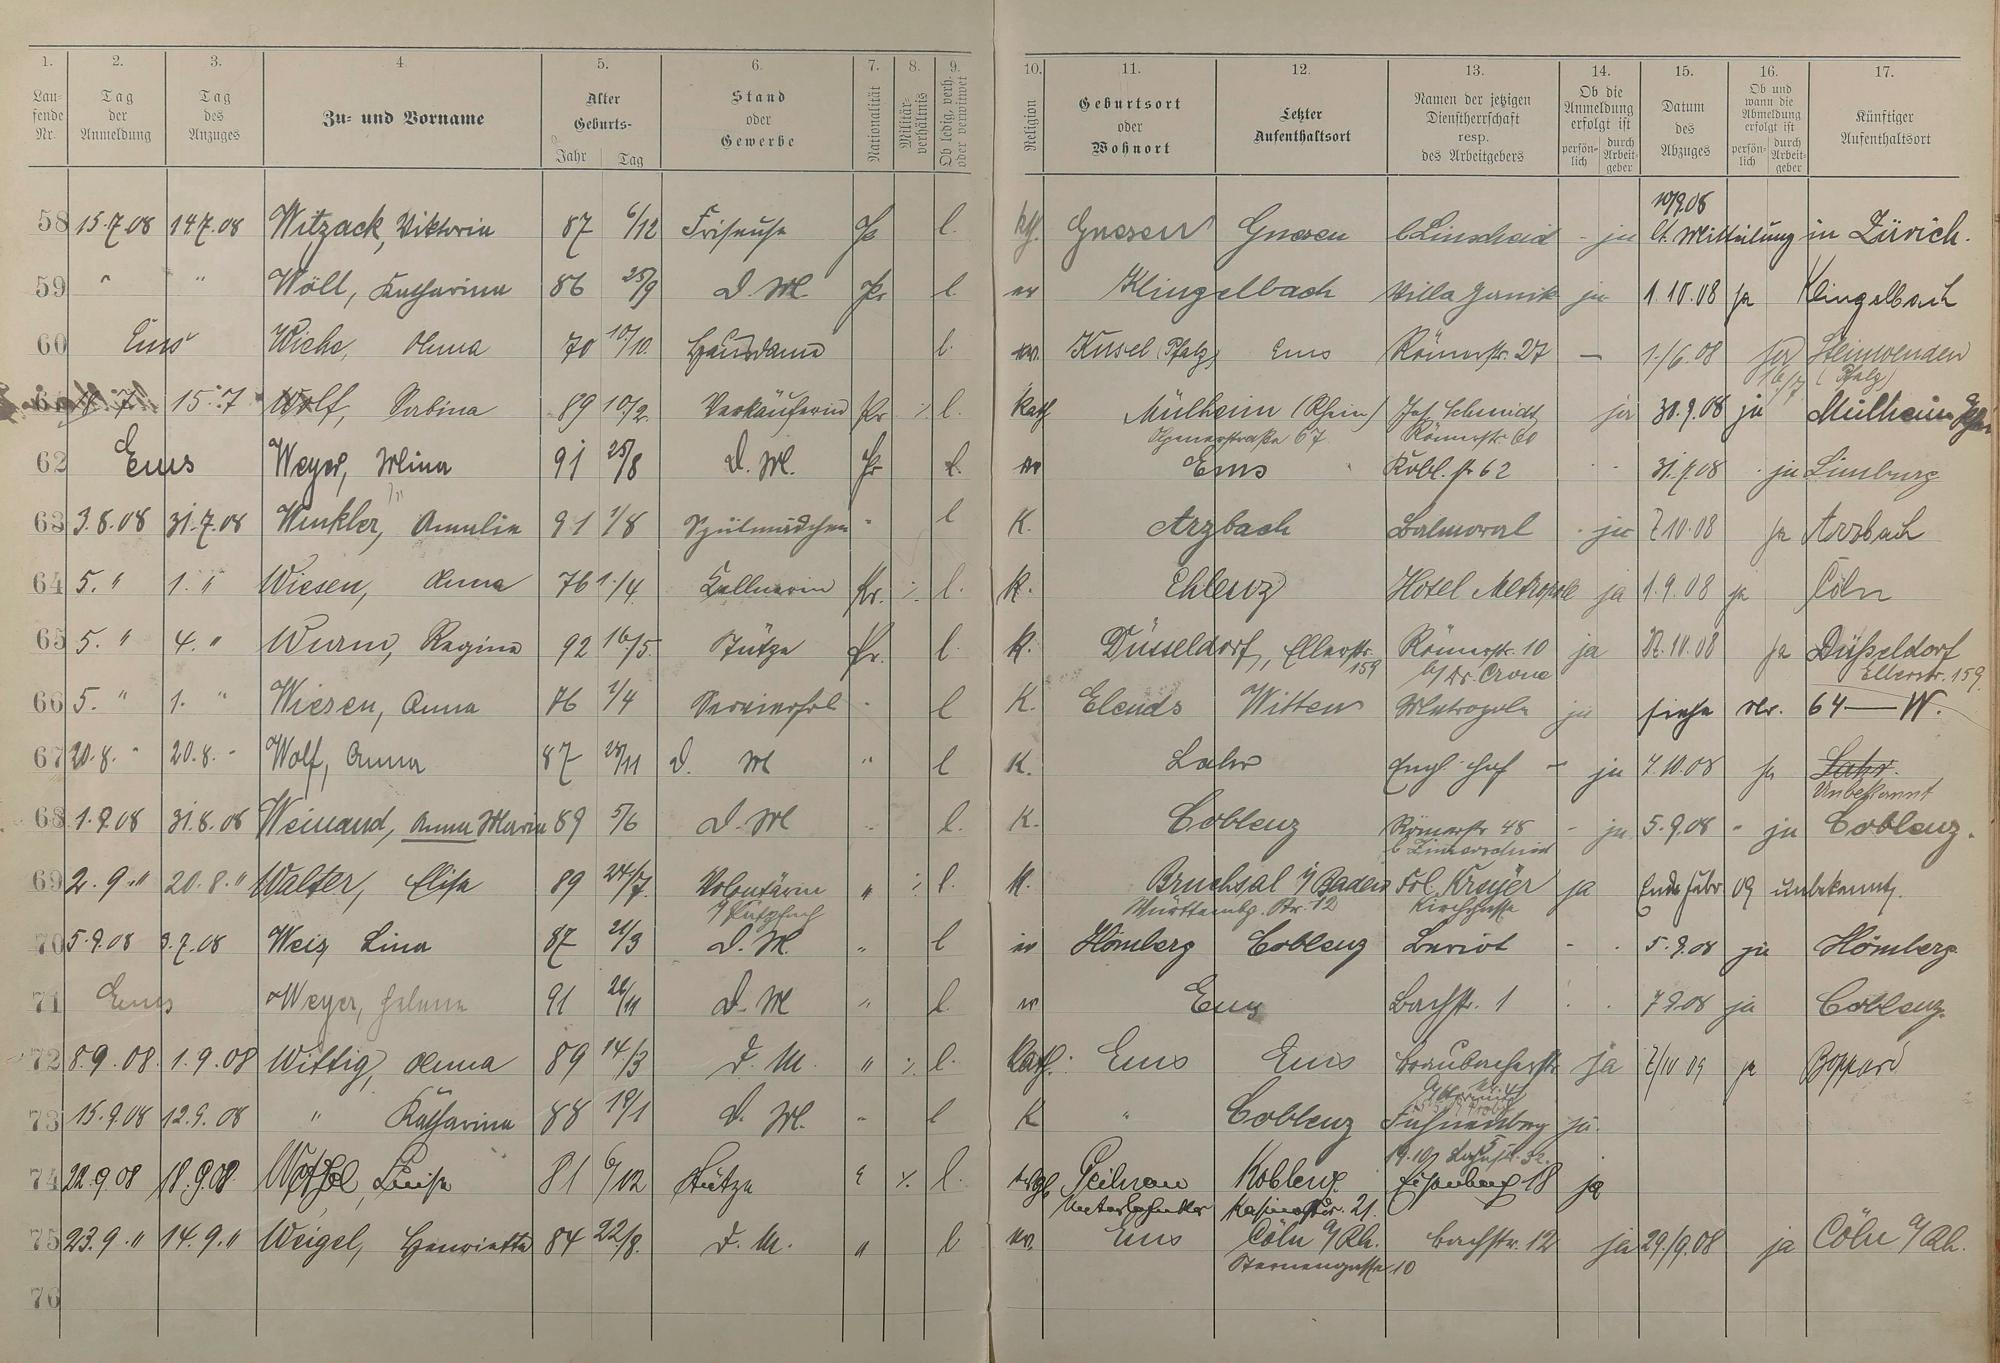 1. 2. 3. 4 5. 6. 7. 8. 9. 10. 11. 12. 13. 14. 15. 16. 17.
Lau-
fende
Nr.
Tag
der
Anmeldung
Tag
des
Anzuges
Zu- und Vorname
Alter
Geburts-
Jahr Tag
Stand
oder
Gewerbe
Nationalität
Militär-
verhältnis
Ob ledig, verh.
oder verwitwet
Religion
Geburtsort
oder
Wohnort
Letzter
Aufenthaltsort
Namen der jetzigen
Dienstherrschaft
resp.
des Arbeitgebers
Ob die
Anmeldung
erfolgt ist
persön-
lich
durch
Arbeit-
geber
Datum
des
Abzuges
Ob und
wann die
Abmeldung
erfolgt ist
persön-
lich
durch
Arbeit-
geber
Künftiger
Aufenthaltsort
10/9.08
58 15.7.08 14.7.08 Witzack, Viktoria 87 6/12 Friseuse Pr l. kth. Gnesen Gnesen b. Linscheid - ja lt. Mitteilung in Zürich.
59 " " Wöll, Katharina 86 25/9 D. M. Pr l. ev Klingelbach Villa ja 1.10.08 ja Klingelbach
60 Ems Wiehe, Anna 70 10/10. Hausdame l. ev. Kusel (Pfalz) Ems Römerstr. 27 — 1./6.08 ja Steinwenden
16/7 (Pfalz)
61 15.7 Wolf, Sabina 89 10/2. Verkäuferin Pr ·/. l. Kath Mülheim (Rhein) Jos. Schmidt ja 30.9.08 ja Mülheim
67 Römerstr. 60
62 Ems Weyer, Mina 91 25/8 D. M. Pr l. ev Ems Kobl. str 62 31.7.08 ja Limburg
63 3.8.08 31.7.08 Winkler, Amalie 91 1/8 Spülmädchen " l K. Arzbach Balmoral · ja 7.10.08 ja Arzbach
64 5. " 1. " Wiesen, Anna 76 1./4. Kellnerin Pr. ·/. l. K. Ehlenz Hotel Metropole ja 1.9.08 ja Cöln
65 5. " 4. " Wurm, Regina 92 16./5. Stütze Pr. l. K. Düsseldorf, Ellerstr. Römerstr. 10 ja 10.08 ja Düßeldorf
159 b/ Dr. Crone Ellerstr. 159.
66 5. " 1. " Wiesen, Anna 76 1/4 Servierfrl " l K. Elends Witten Metropole ja siehe Nr. 64 — W.
67 20.8. " 20.8. " Wolf, Anna 87 25/11 D. M " l K. Lahr Engl. Hof - ja 7.10.08 ja Lahr.
Unbekannt
68 1.9.08 31.8.08 Weinand, Anna Maria 89 5/6 D. M " l. K. Coblenz Römerstr 48 - ja 5.9.08 " ja Coblenz.
69 2. 9." 20.8." Walter, Elise 89 24/7. Volontärin " ·/. l. K. Bruchsal i/ Baden Frl. Kreyer ja Ende Febr 09 unbekannt.
i/ Putzfach Württembg. Str. 12 Kirchgasse
70 5.9.08 3.9.08 Weis Lina 87 21/3 D. M. " l ev Hömberg Coblenz Beriot - · 5.9.08 ja Hömberg.
71 Ems Weyer, Helena 91 26/11 D. M " l. ev Ems Bachstr. 1 7.9.08 ja Coblenz.
72 8.9.08. 1.9.08 Wittig, Anna 89 14./3 D. M. " ·/. l. Kath. Ems Ems Braubacherstr ja 7/IV 09 ja Boppard
73 15.9.08 12.9.08 " Katharina 88 19/1 D. M. " l K " Coblenz ja.
74 22.9.08 18.9.08. Luise 81 6/12 Stütze " ·/. l. Koblenz Eisenbach 18 ja
Kasinostr. 21.
75 23.9." 14.9." Weigel, Henriette 84 22/8. D. M. " l ev. Ems Cöln a/Rh. Bachstr. 12 ja 29./9.08 ja Cöln a/Rh.
Sternengasse 10
76